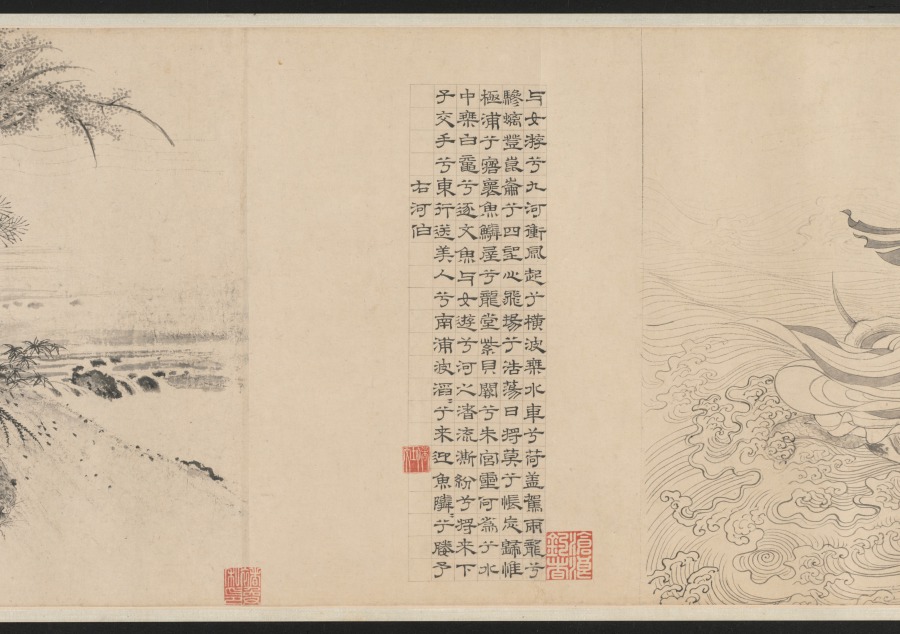 与女游兮九河衝風起兮横波乗水車兮荷盖駕兩龍兮
驂螭登崑崙兮四望心飛揚兮浩蕩日将莫兮悵忘歸惟
極浦兮寤褱魚鱗屋兮龍堂紫貝闕兮朱宮靈何為兮水
中乗白黿兮逐文魚与女遊兮河之渚流澌紛兮将来下
子交手兮東行送美人兮南浦波滔〻兮来迎魚隣〻兮媵予
右河伯